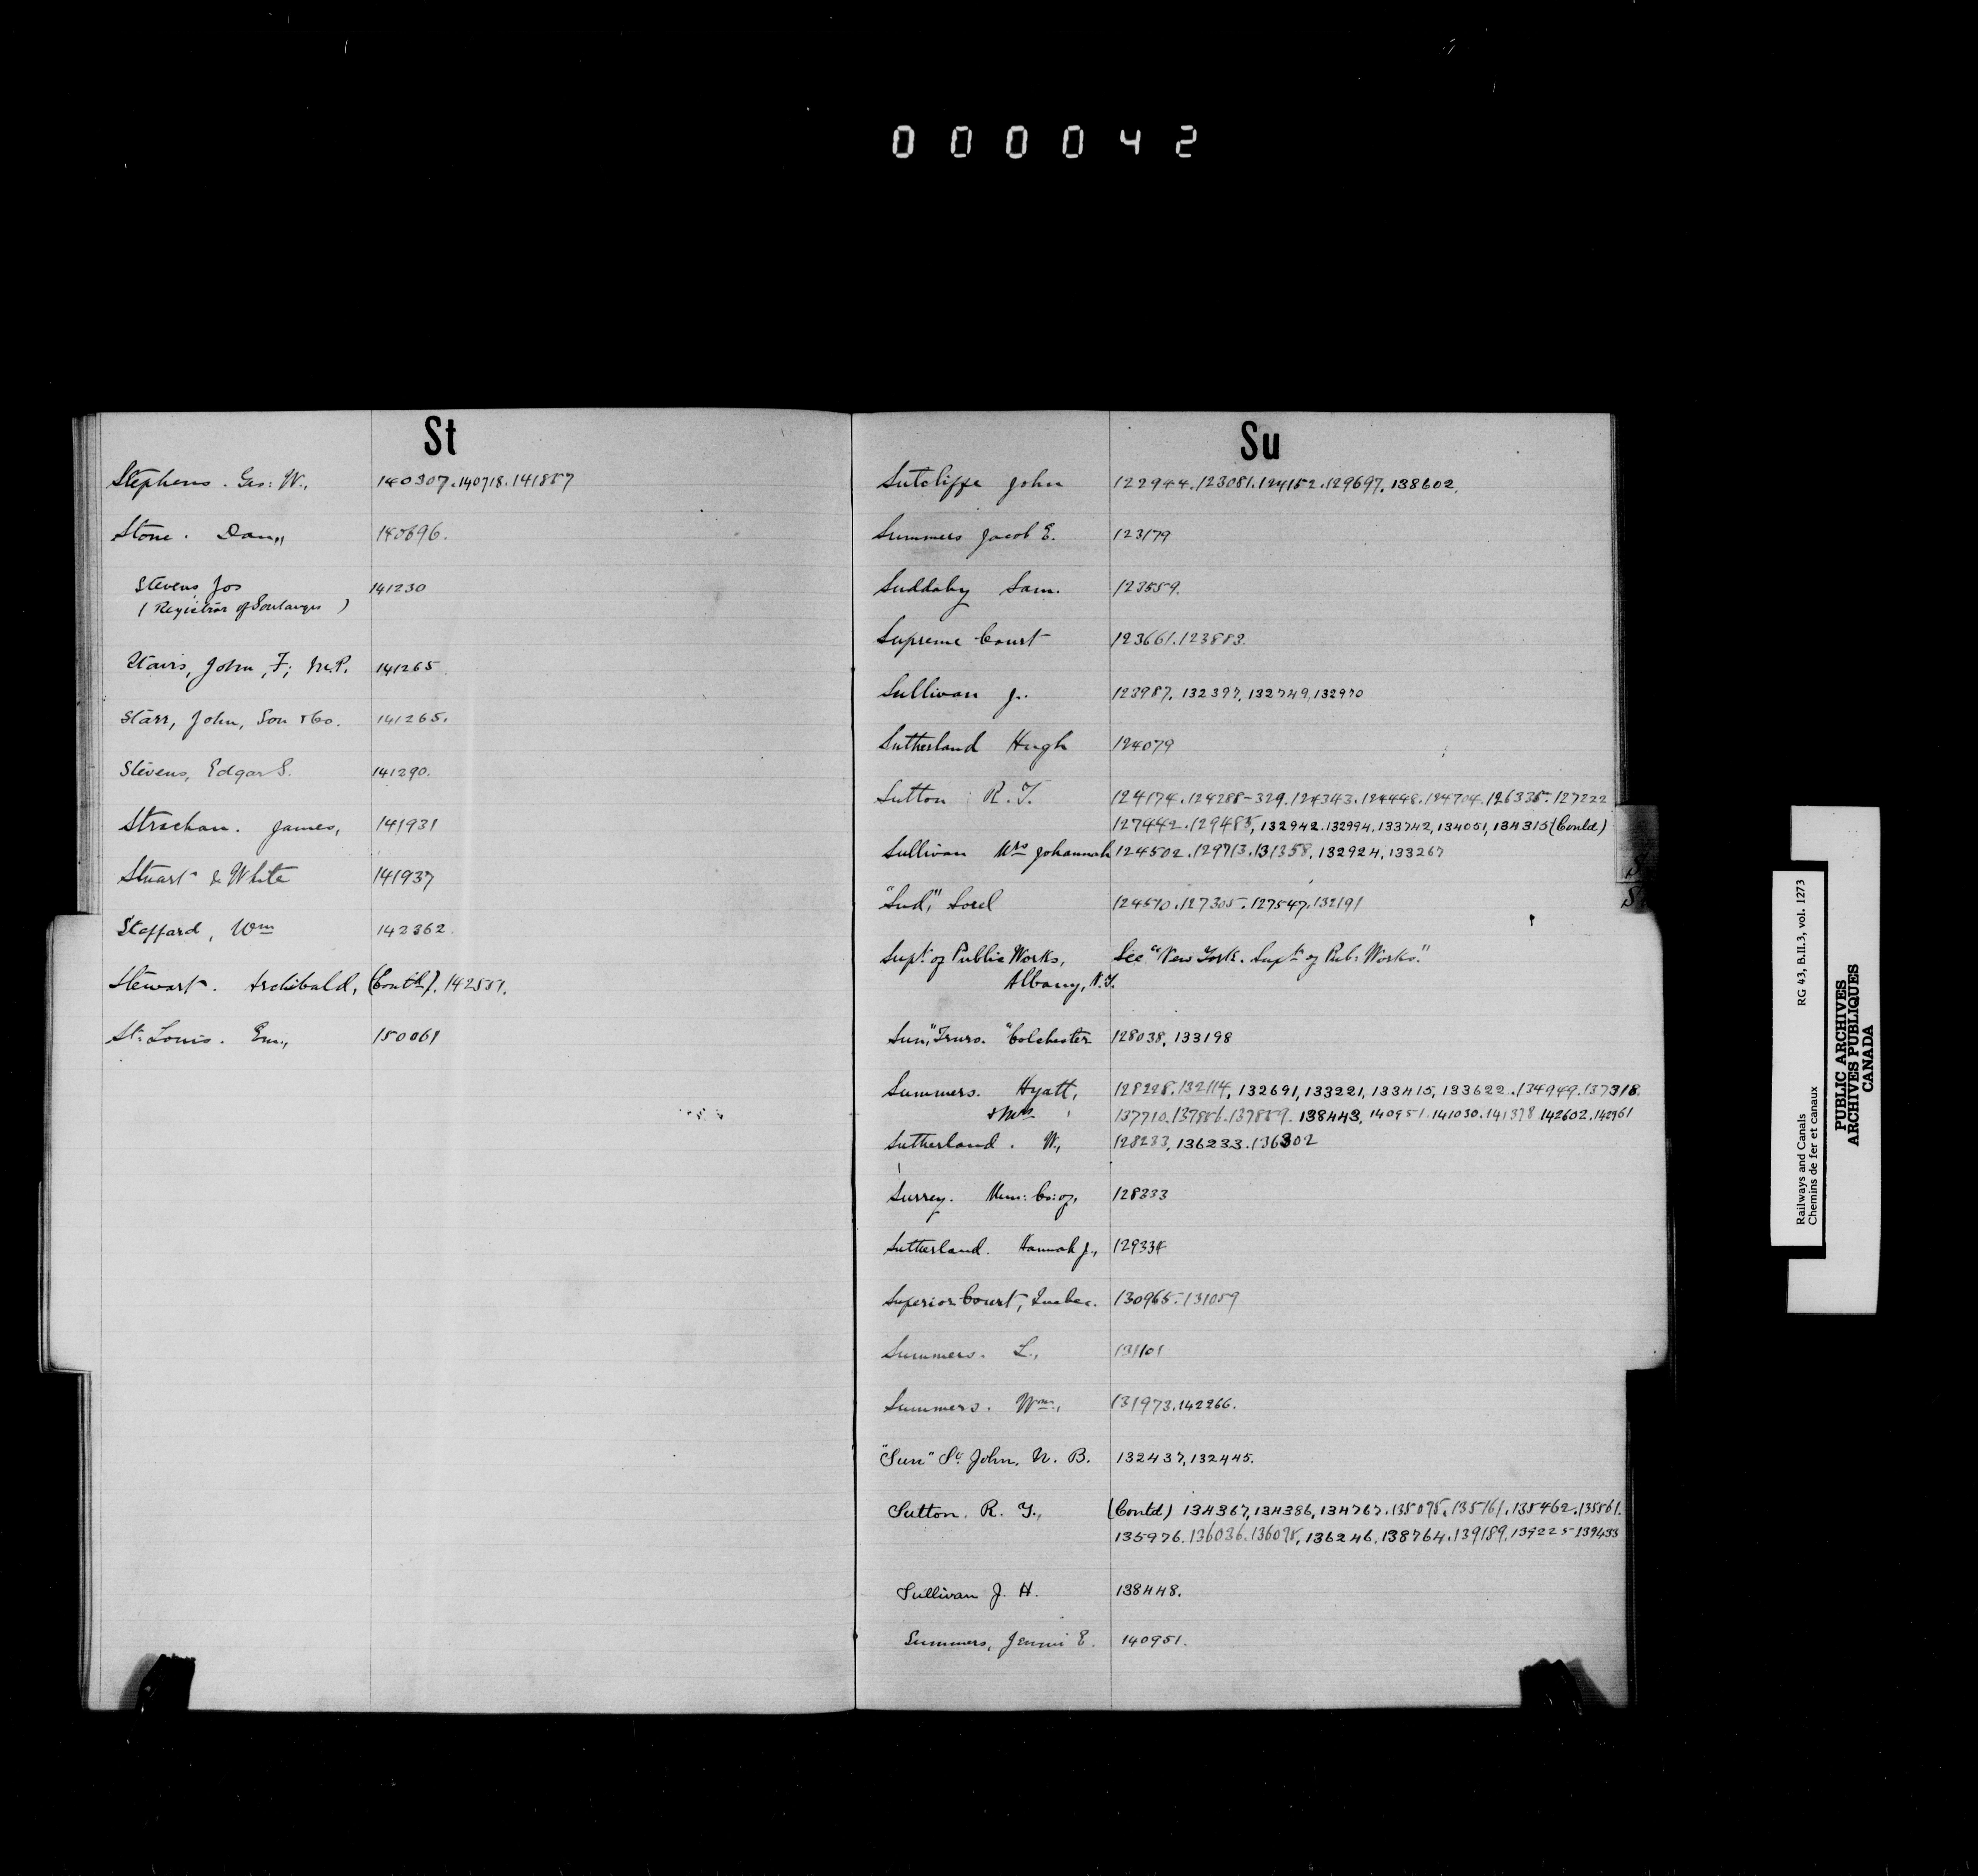 000042
St
Stephens. Geo: W., 140307.140718.141857
Stone. Dan,, 140696.
Stevens, Jos 141230
(Registrar of Soulanges)
Stairs, John, F; M.P. 141265
Starr, John, Son & Co. 141265.
Stevens, Edgar S. 141290.
Strachan. James, 141931
Stuart & White 141937
Steffard, Wm 142362.
Stewart. Archibald, (Contd). 142537.
St: Louis. Em,, 150061
Su
Sutcliffe John 122944.123081.124152.129697.138602.
Summers Jacob E. 123179
Suddaby Sam. 123559.
Supreme Court 123661.123883.
Sullivan J. 123987, 132397, 132749, 132970
Sutherland Hugh 124079
Sutton R. T. 124174.124288-329.124343.124448.124704.126335.127222
127442.129485, 132942.132994, 133742, 134051, 134315 (Contd)
Sullivan Mrs Johannah 124502.129713.131358, 132924, 133267
"Sud", Sorel 124570.127305.127547.132191
Supt. of Public Works, See "New York. Supt of Pub: Works."
Albany, N.Y.
Sun," Truro. "Colchester 128038, 133198
Summers. Hyatt, 128228.132114, 132691, 133221, 133415, 133622.134949.137318.
& Mrs 137710.137856.137859. 138443, 140951.141030.141378.142602.142961
Sutherland. W., 128233, 136233.136302
Surrey. Mun: Co: of, 128333
Sutherland. Hannah J., 129334
Superior Court, Quebec. 130965.131059
Summers. L., 131101
Summers. Wm., 131973.142266.
"Sun" St. John. N. B. 132437, 132445.
Sutton. R. T., (Contd) 134367, 134386, 134767.135075.135161.135462.135561.
135976.136036.136075, 136246.138764.139189.139225-139433
Sullivan J. H. 138448.
Summers, Jennie E. 140951.
Railways and Canals RG 43, B.II.3, vol. 1273
Chemins de fer et canaux
PUBLIC ARCHIVES
ARCHIVES PUBLIQUES
CANADA